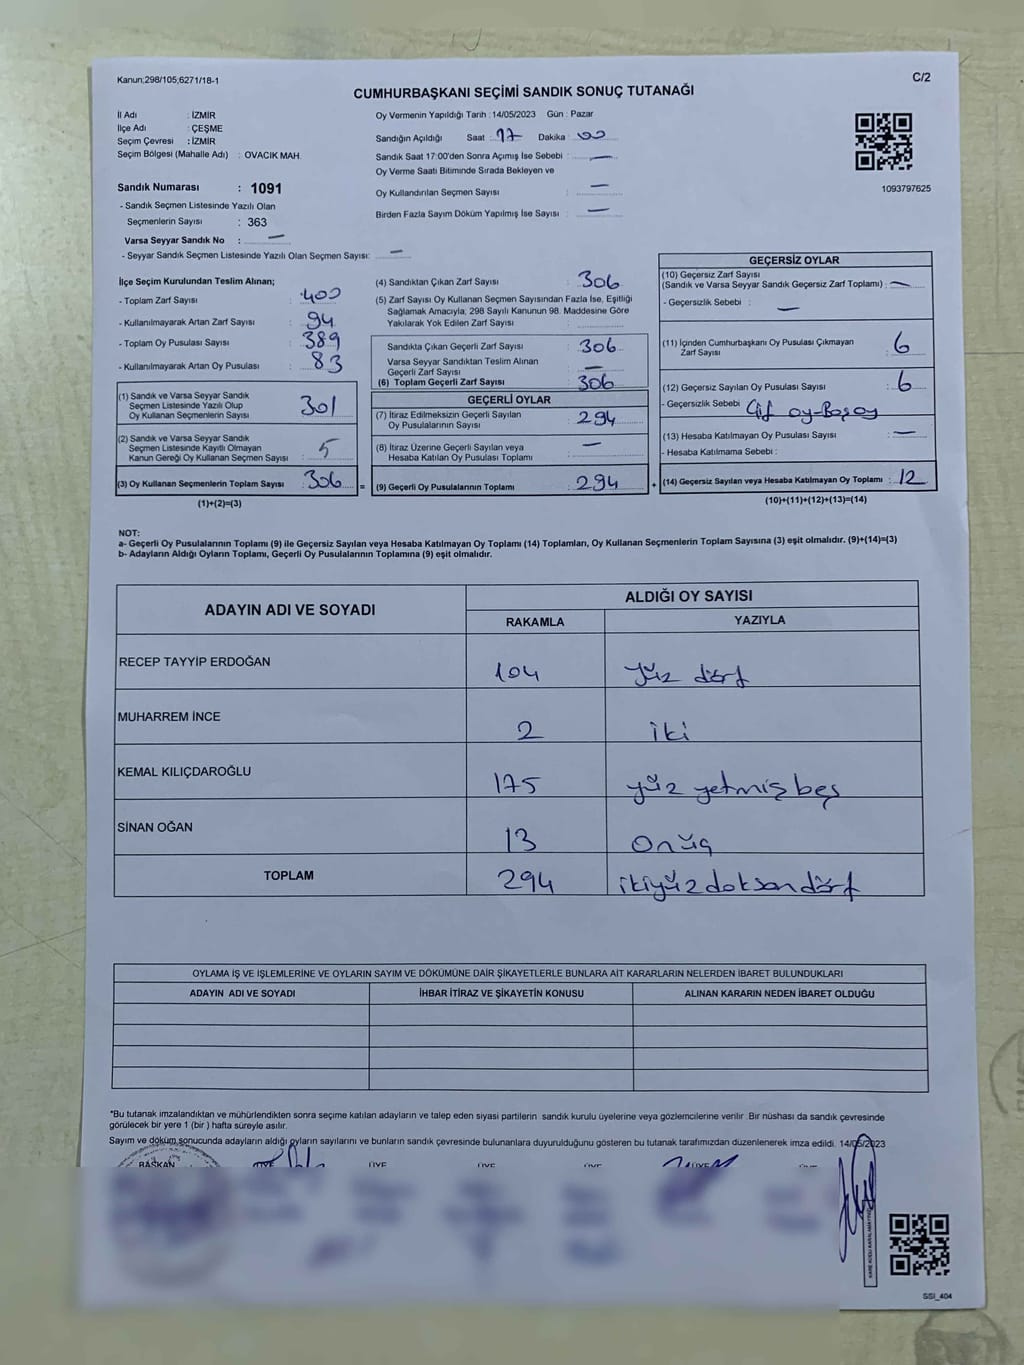 Kanun;298/105;6271/18-1
C/2
CUMHURBAŞKANI SEÇİMİ SANDIK SONUÇ TUTANAĞI
İl Adı : İZMİR
İlçe Adı : ÇEŞME
Seçim Çevresi : İZMİR
Seçim Bölgesi (Mahalle Adı) : OVACIK MAH.
Sandık Numarası : 1091
- Sandık Seçmen Listesinde Yazılı Olan
Seçmenlerin Sayısı : 363
Varsa Seyyar Sandık No : —
- Seyyar Sandık Seçmen Listesinde Yazılı Olan Seçmen Sayısı: —
Oy Vermenin Yapıldığı Tarih : 14/05/2023 Gün : Pazar
Sandığın Açıldığı Saat : 17 Dakika : 00
Sandık Saat 17:00'den Sonra Açımış İse Sebebi : —
Oy Verme Saati Bitiminde Sırada Bekleyen ve
Oy Kullandırılan Seçmen Sayısı : —
Birden Fazla Sayım Döküm Yapılmış İse Sayısı : —
1093797625
İlçe Seçim Kurulundan Teslim Alınan;
- Toplam Zarf Sayısı : 400
- Kullanılmayarak Artan Zarf Sayısı : 94
- Toplam Oy Pusulası Sayısı : 389
- Kullanılmayarak Artan Oy Pusulası : 83
(1) Sandık ve Varsa Seyyar Sandık
Seçmen Listesinde Yazılı Olup
Oy Kullanan Seçmenlerin Sayısı 301
(2) Sandık ve Varsa Seyyar Sandık
Seçmen Listesinde Kayıtlı Olmayan
Kanun Gereği Oy Kullanan Seçmen Sayısı : 5
(3) Oy Kullanan Seçmenlerin Toplam Sayısı : 306 =
(1)+(2)=(3)
(4) Sandıktan Çıkan Zarf Sayısı : 306
(5) Zarf Sayısı Oy Kullanan Seçmen Sayısından Fazla İse, Eşitliği
Sağlamak Amacıyla, 298 Sayılı Kanunun 98. Maddesine Göre
Yakılarak Yok Edilen Zarf Sayısı :
Sandıkta Çıkan Geçerli Zarf Sayısı : 306
Varsa Seyyar Sandıktan Teslim Alınan
Geçerli Zarf Sayısı : —
(6) Toplam Geçerli Zarf Sayısı : 306
GEÇERLİ OYLAR
(7) İtiraz Edilmeksizin Geçerli Sayılan
Oy Pusulalarının Sayısı : 294
(8) İtiraz Üzerine Geçerli Sayılan veya
Hesaba Katılan Oy Pusulası Toplamı : —
(9) Geçerli Oy Pusulalarının Toplamı : 294 +
GEÇERSİZ OYLAR
(10) Geçersiz Zarf Sayısı
(Sandık ve Varsa Seyyar Sandık Geçersiz Zarf Toplamı) : —
- Geçersizlik Sebebi : —
(11) İçinden Cumhurbaşkanı Oy Pusulası Çıkmayan
Zarf Sayısı : 6
(12) Geçersiz Sayılan Oy Pusulası Sayısı : 6
- Geçersizlik Sebebi : Çift oy-Boş oy
(13) Hesaba Katılmayan Oy Pusulası Sayısı : —
- Hesaba Katılmama Sebebi :
(14) Geçersiz Sayılan veya Hesaba Katılmayan Oy Toplamı : 12
(10)+(11)+(12)+(13)=(14)
NOT:
a- Geçerli Oy Pusulalarının Toplamı (9) ile Geçersiz Sayılan veya Hesaba Katılmayan Oy Toplamı (14) Toplamları, Oy Kullanan Seçmenlerin Toplam Sayısına (3) eşit olmalıdır. (9)+(14)=(3)
b- Adayların Aldığı Oyların Toplamı, Geçerli Oy Pusulalarının Toplamına (9) eşit olmalıdır.
ADAYIN ADI VE SOYADI
ALDIĞI OY SAYISI
RAKAMLA YAZIYLA
RECEP TAYYİP ERDOĞAN 104 yüz dört
MUHARREM İNCE 2 iki
KEMAL KILIÇDAROĞLU 175 yüz yetmiş beş
SİNAN OĞAN 13 Onüç
TOPLAM 294 ikiyüzdoksandört
OYLAMA İŞ VE İŞLEMLERİNE VE OYLARIN SAYIM VE DÖKÜMÜNE DAİR ŞİKAYETLERLE BUNLARA AİT KARARLARIN NELERDEN İBARET BULUNDUKLARI
ADAYIN ADI VE SOYADI İHBAR İTİRAZ VE ŞİKAYETİN KONUSU ALINAN KARARIN NEDEN İBARET OLDUĞU
"Bu tutanak imzalandıktan ve mühürlendikten sonra seçime katılan adayların ve talep eden siyasi partilerin sandık kurulu üyelerine veya gözlemcilerine verilir. Bir nüshası da sandık çevresinde
görülecek bir yere 1 (bir ) hafta süreyle asılır.
Sayım ve döküm sonucunda adayların aldığı oyların sayılarını ve bunların sandık çevresinde bulunanlara duyurulduğunu gösteren bu tutanak tarafımızdan düzenlenerek imza edildi. 14/05/2023
BAŞKAN ÜYE ÜYE ÜYE ÜYE ÜYE
SSI_404